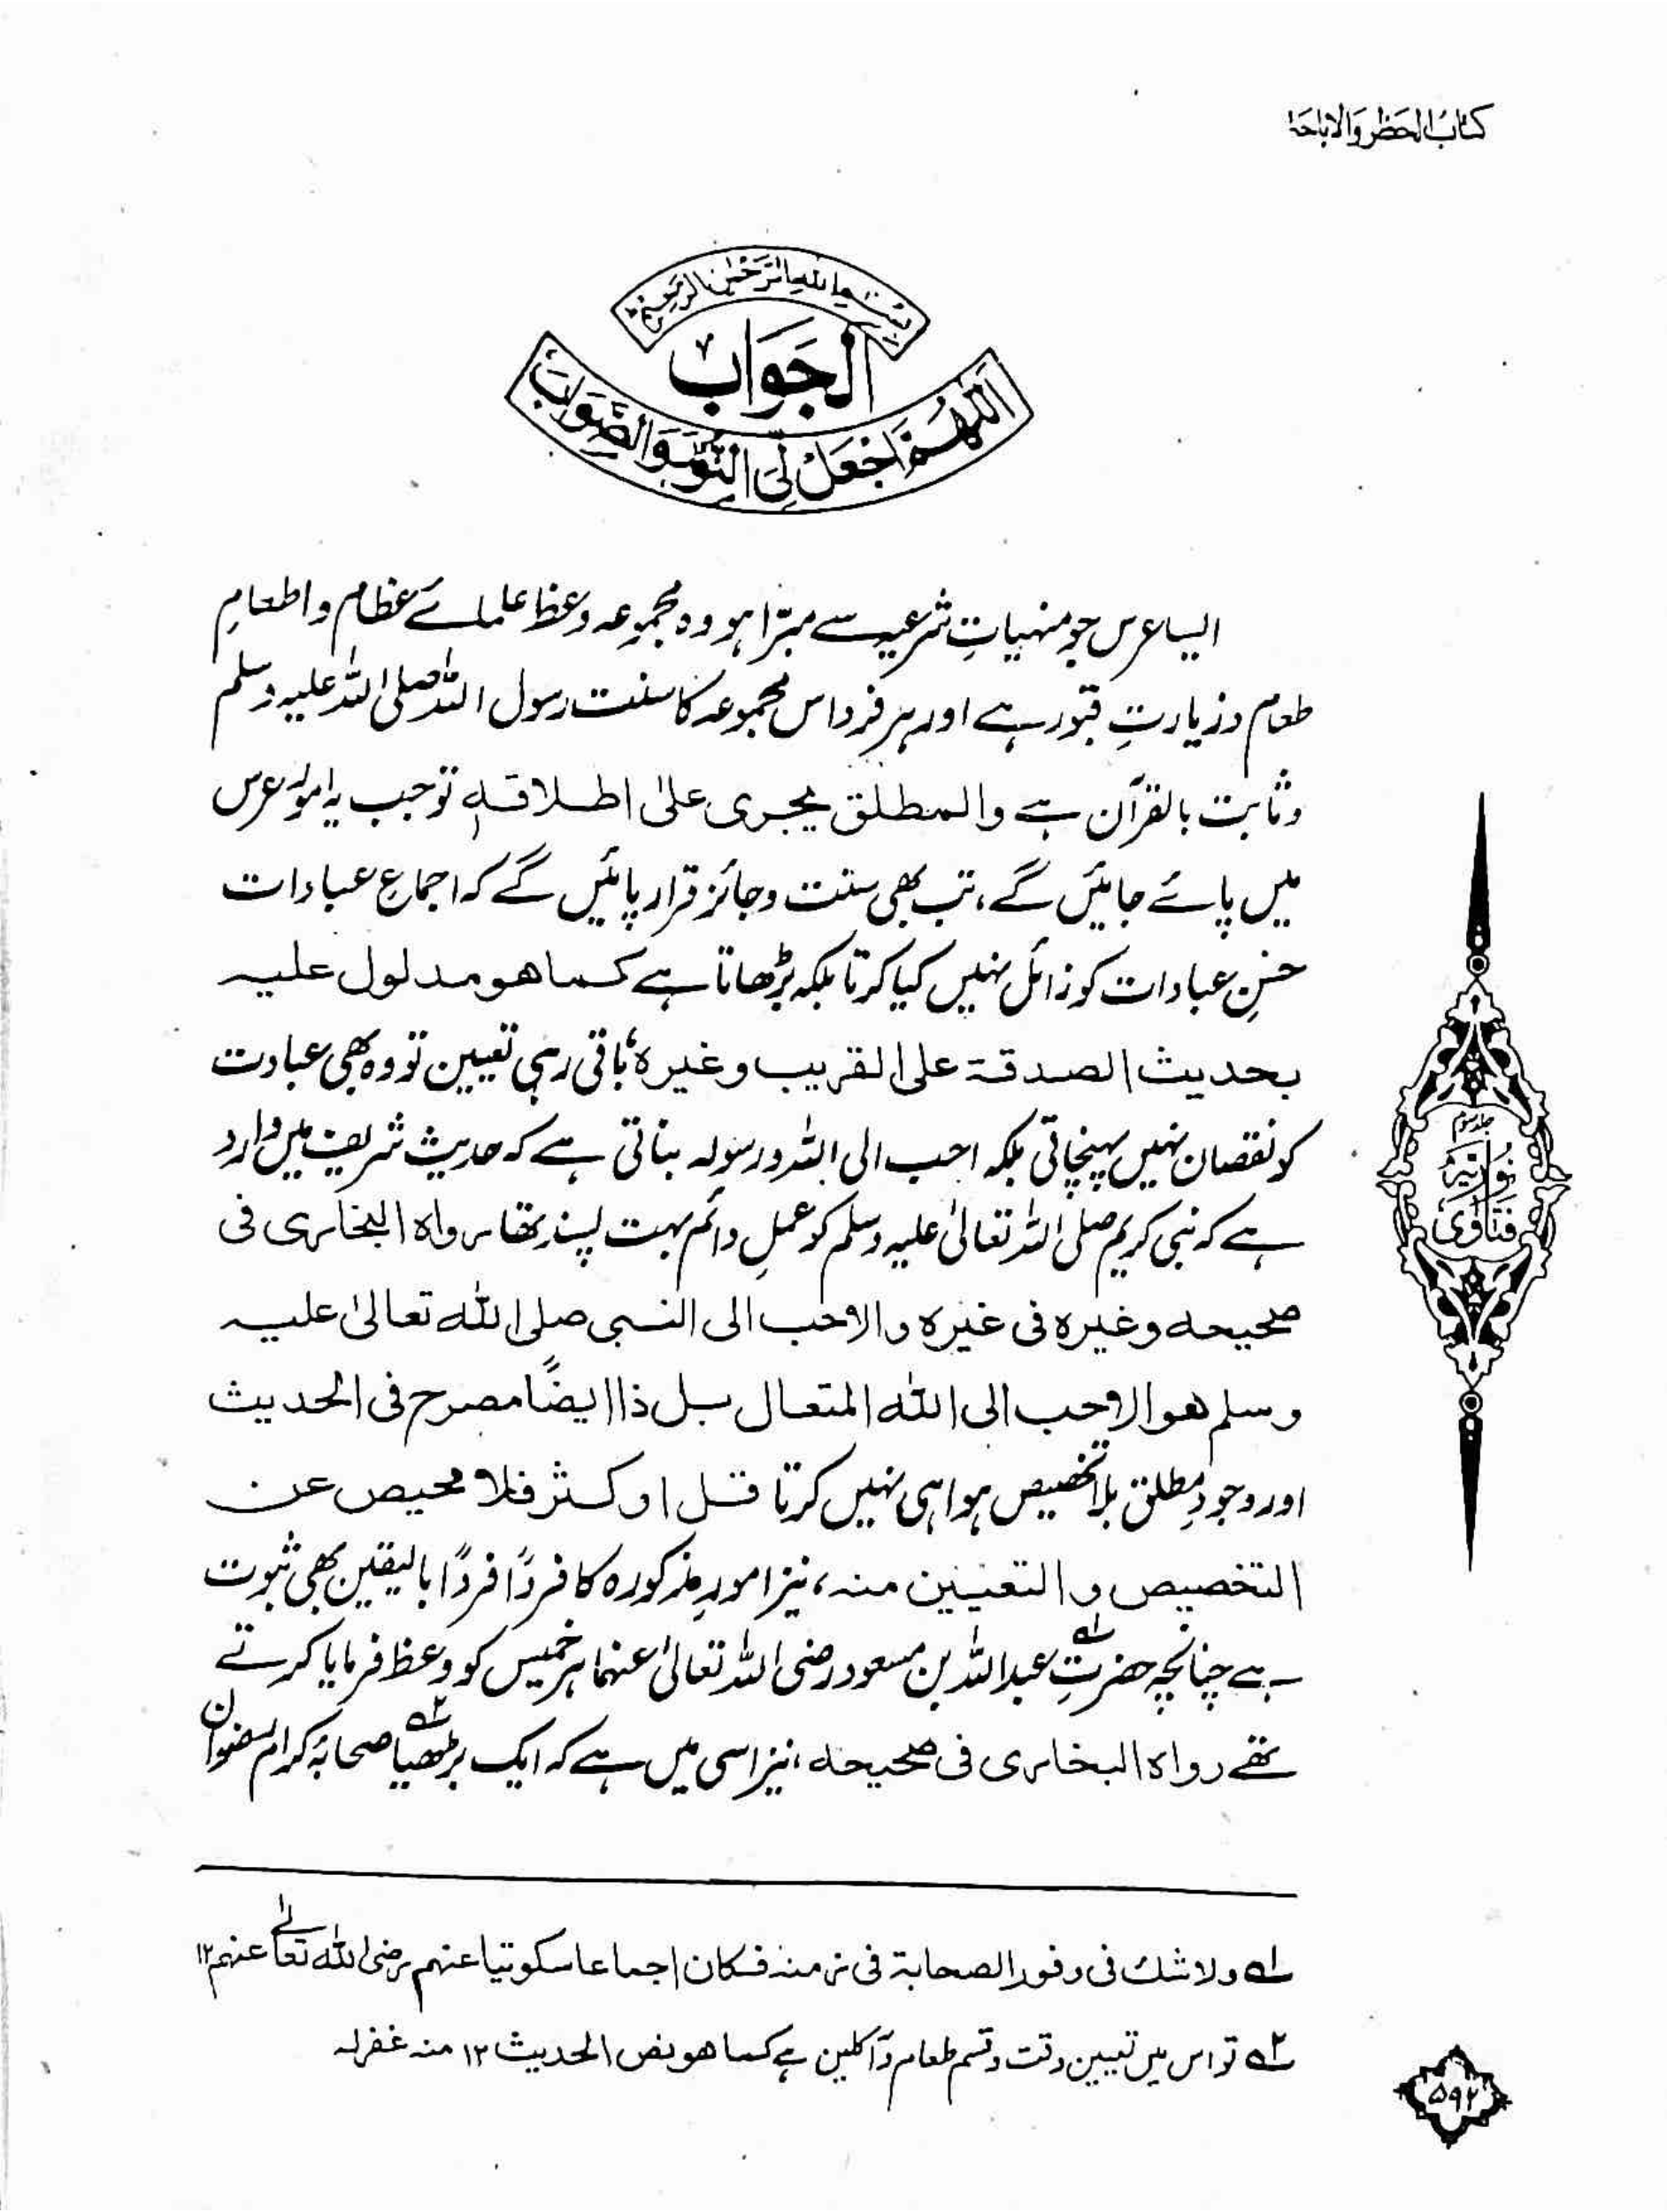 كتاب الحظر والاباحة
بسم الله الرحمن الرحيم
الجواب
اللهم اجعل لي النور والصواب
ایسا عرس جو منہیاتِ شرعیہ سے مبرّا ہو وہ مجموعہ وعظ علمائے عظام و اطعامِ
طعام و زیارتِ قبور ہے اور ہر فرد اس مجموعہ کا سنت رسول اللہ صلی اللہ علیہ وسلم
و ثابت بالقرآن ہے والمطلق يجرى على اطلاقه تو جب یہ امور عرس
میں پائے جائیں گے، تب بھی سنت و جائز قرار پائیں گے کہ اجماع عبادات
حسنِ عبادات کو زائل نہیں کیا کرتا بلکہ بڑھاتا ہے كما هو مدلول عليه
بحديث الصدقة على القريب وغيره، باقی رہی تعیین تو وہ بھی عبادت
کو نقصان نہیں پہنچاتی بلکہ احب الی اللہ و رسولہ بناتی ہے کہ حدیث شریف میں وارد
ہے کہ نبی کریم صلی اللہ تعالیٰ علیہ وسلم کو عملِ دائم بہت پسند تھا رواه البخارى فى
صحيحه وغيره فى غيره والاحب الى النبى صلى الله تعالىٰ عليه
وسلم هو الاحب الى الله المتعال بل ذا ايضًا مصرح فى الحديث
اور وجودِ مطلق بلا تخصیص ہوا ہی نہیں کرتا قل او كثر فلا محيص عن
التخصيص والتعيين منه، نیز امورِ مذکورہ کا فردًا فردًا بالیقین بھی ثبوت
ہے چنانچہ حضرتِ عبداللہ ۱؎ بن مسعود رضی اللہ تعالیٰ عنہما ہر خمیس کو وعظ فرمایا کرتے
تھے رواه البخارى فى صحيحه، نیز اسی میں ہے کہ ایک بڑھیا ۲؎ صحابۂ کرام رضوان
۱؎ ولا شك فى وفور الصحابة فى زمنه فكان اجماعا سكوتيا عنهم رضى الله تعالىٰ عنهم ۱۲
۲؎ تو اس میں تعیین وقت و قسم طعام و آکلین ہے كما هو نص الحديث ۱۲ منه غفرله
جلد سوم
فتاوىٰ نوريہ
۵۹۲